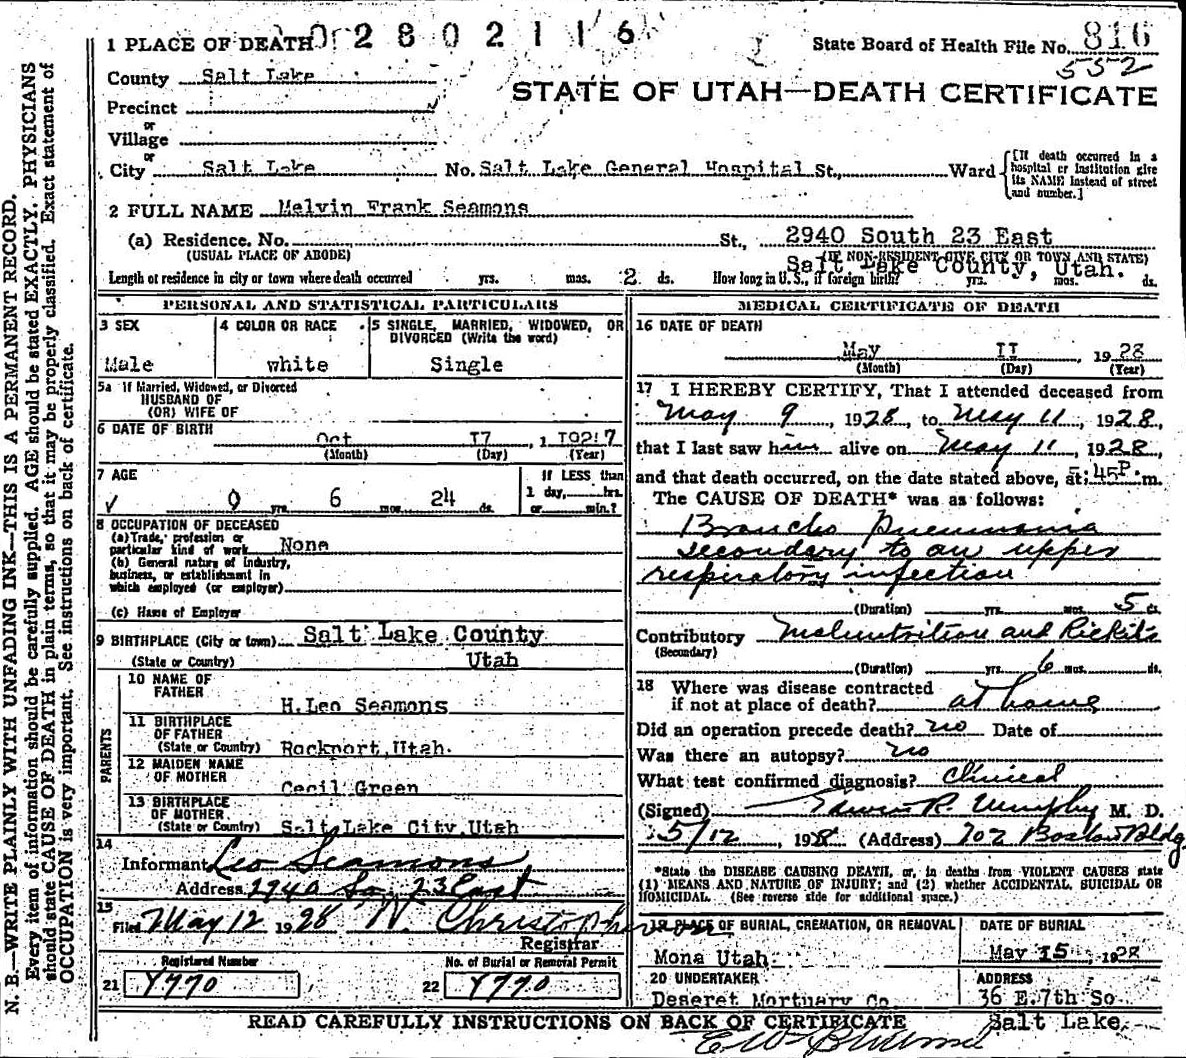 02802116
1 PLACE OF DEATH
State Board of Health File No. 816
552
County Salt Lake
STATE OF UTAH—DEATH CERTIFICATE
Precinct
or
Village
or
City Salt Lake No. Salt Lake General Hospital St., Ward
[If death occurred in a hospital or institution give its NAME instead of street and number.]
2 FULL NAME Melvin Frank Seamons
(a) Residence. No. St., 2940 South 23 East
(USUAL PLACE OF ABODE) (IF NON-RESIDENT GIVE CITY OR TOWN AND STATE)
Salt Lake County, Utah.
Length of residence in city or town where death occurred yrs. mos. 2 ds. How long in U. S., if foreign birth? yrs. mos. ds.
PERSONAL AND STATISTICAL PARTICULARS
3 SEX
Male
4 COLOR OR RACE
white
5 SINGLE, MARRIED, WIDOWED, OR DIVORCED (Write the word)
Single
5a If Married, Widowed, or Divorced
HUSBAND OF
(OR) WIFE OF
6 DATE OF BIRTH
Oct 17, 1927
(Month) (Day) (Year)
7 AGE
0 yrs. 6 mos. 24 ds.
If LESS than
1 day, hrs.
or min.?
8 OCCUPATION OF DECEASED
(a) Trade, profession or
particular kind of work None
(b) General nature of Industry,
business, or establishment in
which employed (or employer)
(c) Name of Employer
9 BIRTHPLACE (City or town) Salt Lake County
(State or Country) Utah
PARENTS
10 NAME OF
FATHER H. Leo Seamons
11 BIRTHPLACE
OF FATHER
(State or Country) Rockport, Utah.
12 MAIDEN NAME
OF MOTHER Cecil Green
13 BIRTHPLACE
OF MOTHER
(State or Country) Salt Lake City, Utah
14
Informant Leo Seamons
Address 2940 So. 23 East
15
Filed May 12 1928
Registrar
Registered Number
21 Y770
No. of Burial or Removal Permit
22 Y770
MEDICAL CERTIFICATE OF DEATH
16 DATE OF DEATH
May II, 1928
(Month) (Day) (Year)
17 I HEREBY CERTIFY, That I attended deceased from
May 9 1928, to May 11, 1928,
that I last saw him alive on May 11, 1928,
and that death occurred, on the date stated above, at 5:45 P. m.
The CAUSE OF DEATH* was as follows:
Broncho Pneumonia
secondary to an upper
respiratory infection
(Duration) yrs. mos. 5 ds.
Contributory Malnutrition and Rickits
(Secondary)
(Duration) yrs. 6 mos. ds.
18 Where was disease contracted
if not at place of death? at home
Did an operation precede death? no Date of
Was there an autopsy? no
What test confirmed diagnosis? Clinical
(Signed) Edwin R. Murphy M. D.
5/12 1928 (Address) 702 Boston Bldg.
*State the DISEASE CAUSING DEATH, or, in deaths from VIOLENT CAUSES state
(1) MEANS AND NATURE OF INJURY; and (2) whether ACCIDENTAL, SUICIDAL OR
HOMICIDAL. (See reverse side for additional space.)
19 PLACE OF BURIAL, CREMATION, OR REMOVAL
Mona Utah
DATE OF BURIAL
May 15 1928
20 UNDERTAKER
Deseret Mortuary Co
ADDRESS
36 E. 7th So
Salt Lake
READ CAREFULLY INSTRUCTIONS ON BACK OF CERTIFICATE
N. B.—WRITE PLAINLY WITH UNFADING INK—THIS IS A PERMANENT RECORD.
Every item of information should be carefully supplied. AGE should be stated EXACTLY. PHYSICIANS
should state CAUSE OF DEATH in plain terms, so that it may be properly classified. Exact statement of
OCCUPATION is very important. See instructions on back of certificate.